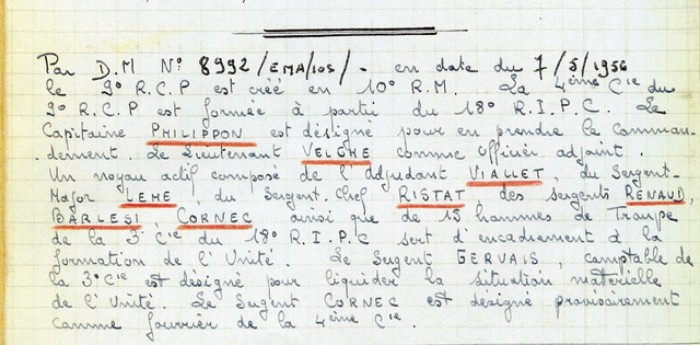 Par D.M N° 8992/EMA/10S/- en date du 7/5/1956
le 9° R.C.P est créé en 10° R.M. La 4ème Cie du
9° R.C.P est formée à partir du 18° R.I.P.C. Le
Capitaine PHILIPPON est désigné pour en prendre le comman-
dement. Le Lieutenant VELGHE comme Officier adjoint.
Un noyau actif composé de l'Adjudant VIALLET, du Sergent-
Major LEME, du Sergent.Chef RISTAT des sergents RENAUD,
BARLESI, CORNEC ainsi que de 15 hommes de Troupe
de la 3° Cie du 18° R.I.P.C sert d'encadrement à la
formation de l'Unité. Le Sergent GERVAIS, comptable de
la 3° Cie est désigné pour liquider la situation matérielle
de l'Unité. Le Sergent CORNEC est désigné provisoirement
comme fourrier de la 4ème Cie.